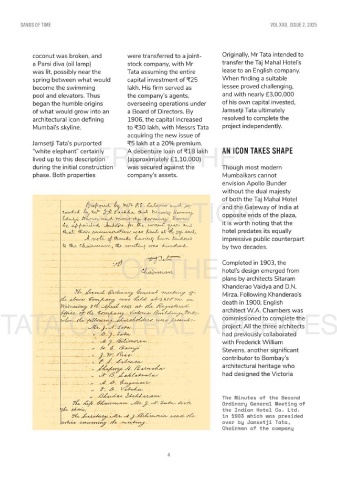 SANDS OF TIME
VOL XXII, ISSUE 2, 2025
coconut was broken, and
a Parsi diva (oil lamp)
was lit, possibly near the
spring between what would
become the swimming
pool and elevators. Thus
began the humble origins
of what would grow into an
architectural icon defining
Mumbai's skyline.
Jamsetji Tata's purported
"white elephant" certainly
lived up to this description
during the initial construction
phase. Both properties
were transferred to a joint-
stock company, with Mr
Tata assuming the entire
capital investment of ₹25
lakh. His firm served as
the company's agents,
overseeing operations under
a Board of Directors. By
1906, the capital increased
to ₹30 lakh, with Messrs Tata
acquiring the new issue of
₹5 lakh at a 20% premium.
A debenture loan of ₹18 lakh
(approximately £1,10,000)
was secured against the
company's assets.
Originally, Mr Tata intended to
transfer the Taj Mahal Hotel's
lease to an English company.
When finding a suitable
lessee proved challenging,
and with nearly £3,00,000
of his own capital invested,
Jamsetji Tata ultimately
resolved to complete the
project independently.
AN ICON TAKES SHAPE
Though most modern
Mumbaikars cannot
envision Apollo Bunder
without the dual majesty
of both the Taj Mahal Hotel
and the Gateway of India at
opposite ends of the plaza,
it is worth noting that the
hotel predates its equally
impressive public counterpart
by two decades.
Completed in 1903, the
hotel's design emerged from
plans by architects Sitaram
Khanderao Vaidya and D.N.
Mirza. Following Khanderao's
death in 1900, English
architect W.A. Chambers was
commissioned to complete the
project. All the three architects
had previously collaborated
with Frederick William
Stevens, another significant
contributor to Bombay's
architectural heritage who
had designed the Victoria
Chairman
The Second Ordinary General meeting of
the above Company was held at
when the following shareholders were present:
Mr J. N. Tata
The Chairman Mr J. N. Tata took
the chair.
The Secretary Mr read the
notice convening the meeting.
The Minutes of the Second
Ordinary General Meeting of
the Indian Hotel Co. Ltd.
in 1903 which was presided
over by Jamsetji Tata,
Chairman of the company
4